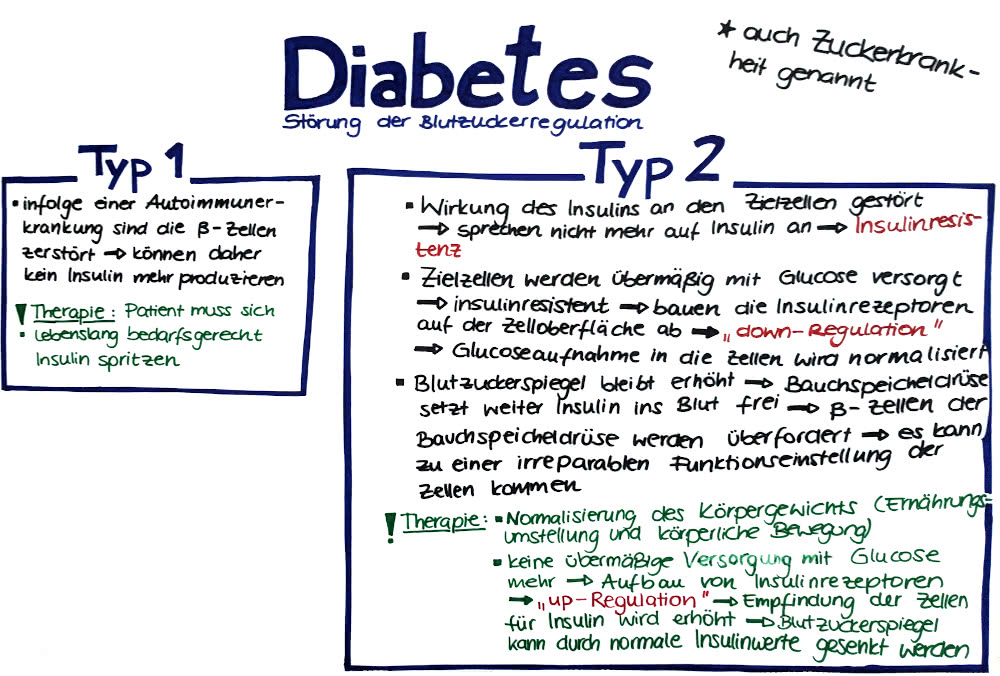 Diabetes
Störung der Blutzuckerregulation
* auch Zuckerkrank-
heit genannt
Typ 1
▪ infolge einer Autoimmuner-
krankung sind die β-Zellen
zerstört → können daher
kein Insulin mehr produzieren
! Therapie: Patient muss sich
lebenslang bedarfsgerecht
Insulin spritzen
Typ 2
▪ Wirkung des Insulins an den Zielzellen gestört
→ sprechen nicht mehr auf Insulin an → Insulinresis-
tenz
▪ Zielzellen werden übermäßig mit Glucose versorgt
→ insulinresistent → bauen die Insulinrezeptoren
auf der Zelloberfläche ab → „down-Regulation"
→ Glucoseaufnahme in die Zellen wird normalisiert
▪ Blutzuckerspiegel bleibt erhöht → Bauchspeicheldrüse
setzt weiter Insulin ins Blut frei → β-Zellen der
Bauchspeicheldrüse werden überfordert → es kann
zu einer irreparablen Funktionseinstellung der
Zellen kommen
! Therapie: ▪ Normalisierung des Körpergewichts (Ernährungs=
umstellung und körperliche Bewegung)
▪ keine übermäßige Versorgung mit Glucose
mehr → Aufbau von Insulinrezeptoren
→ „up-Regulation" → Empfindung der Zellen
für Insulin wird erhöht → Blutzuckerspiegel
kann durch normale Insulinwerte gesenkt werden